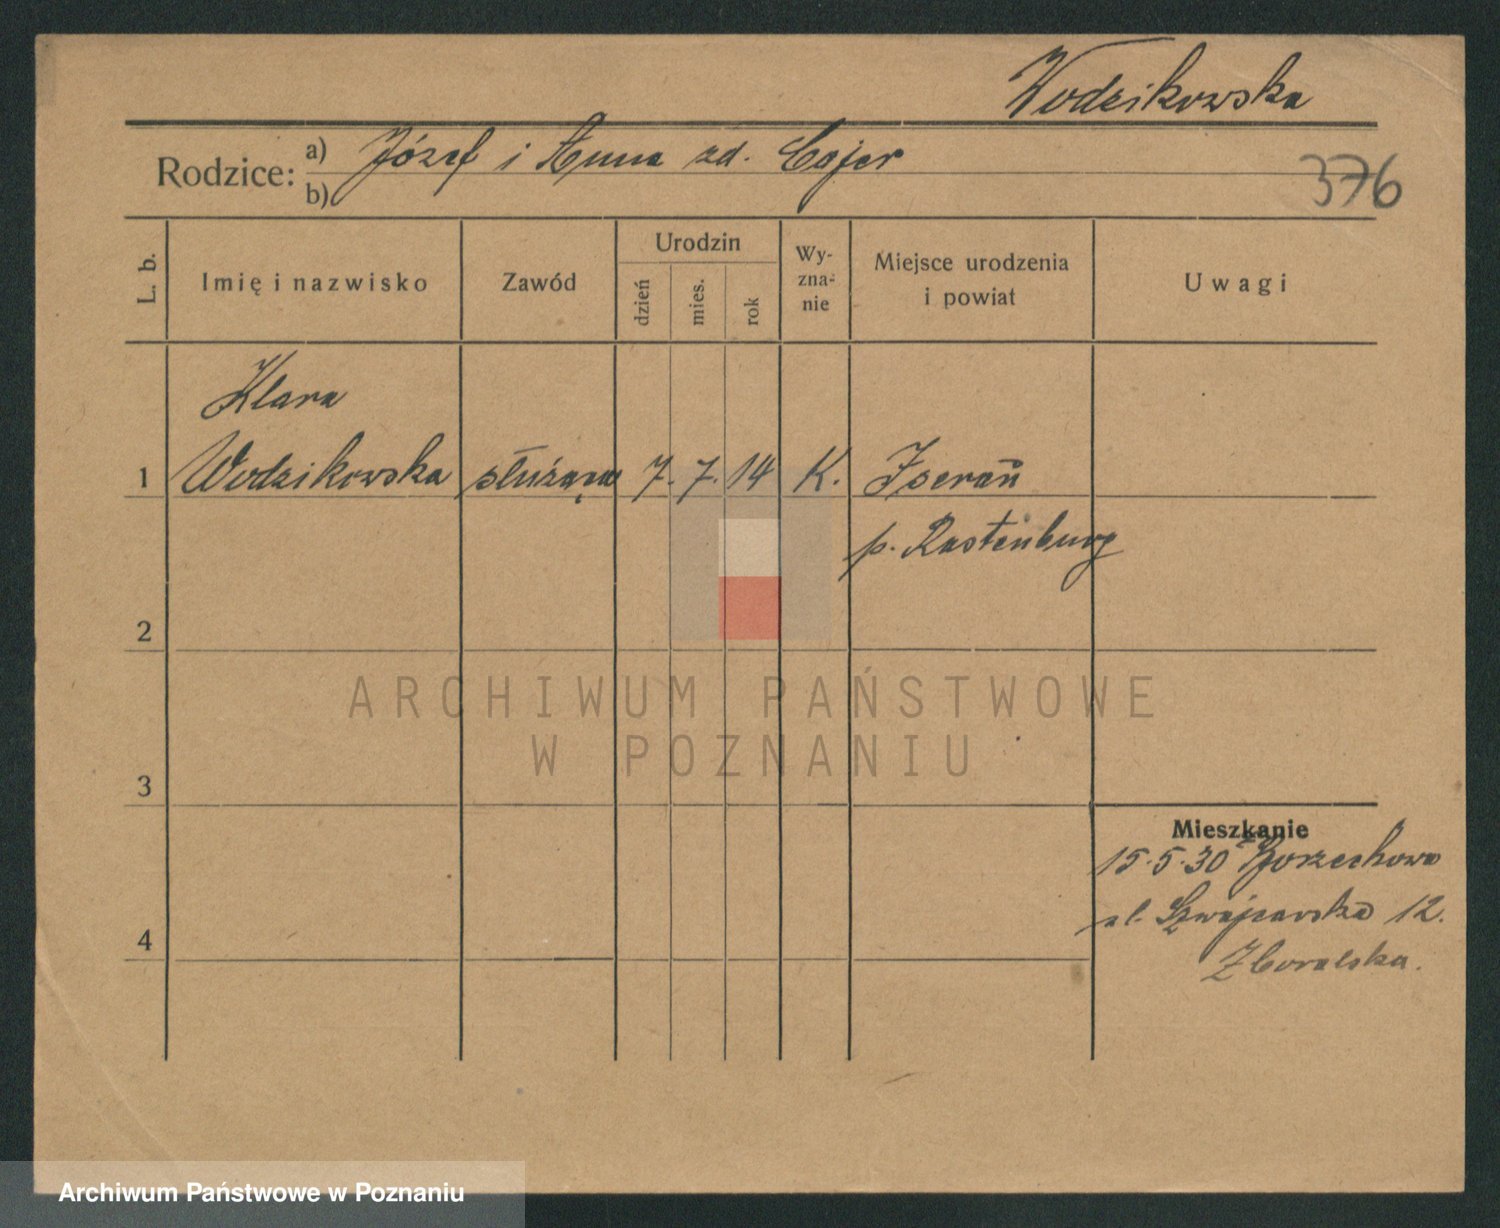 Wodzikowska
Rodzice: a) Józef i Anna zd. Cojer
b)
376
L. b.
Imię i nazwisko
Zawód
Urodzin
dzień
mies.
rok
Wy-
zna-
nie
Miejsce urodzenia
i powiat
Uwagi
Klara
1 Wodzikowska służąca 7. 7. 14 K. Iserań
p. Rastenburg
2
ARCHIWUM PAŃSTWOWE
W POZNANIU
3
Mieszkanie
15.5.30 Borzechowo
ul. Szwajcarska 12.
Zboralska.
4
Archiwum Państwowe w Poznaniu